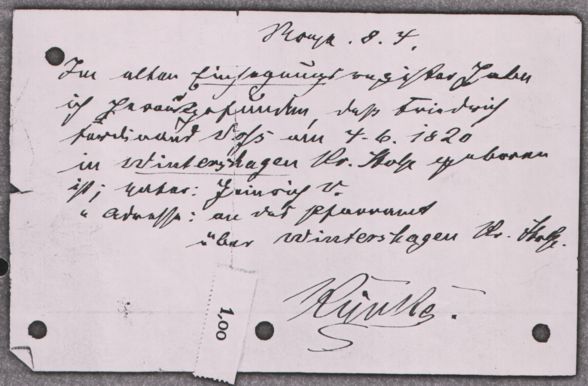 8. 4.
Im alten Einsegnungsregister habe
ich herausgefunden, daß Friedrich
Ferdinand Voß am 4. 6. 1820
in Wintershagen Kr. Stolp geboren
ist; Vater: Heinrich V.
" Adresse: an das Pfarramt
über Wintershagen Kr. Stolp.
1,00